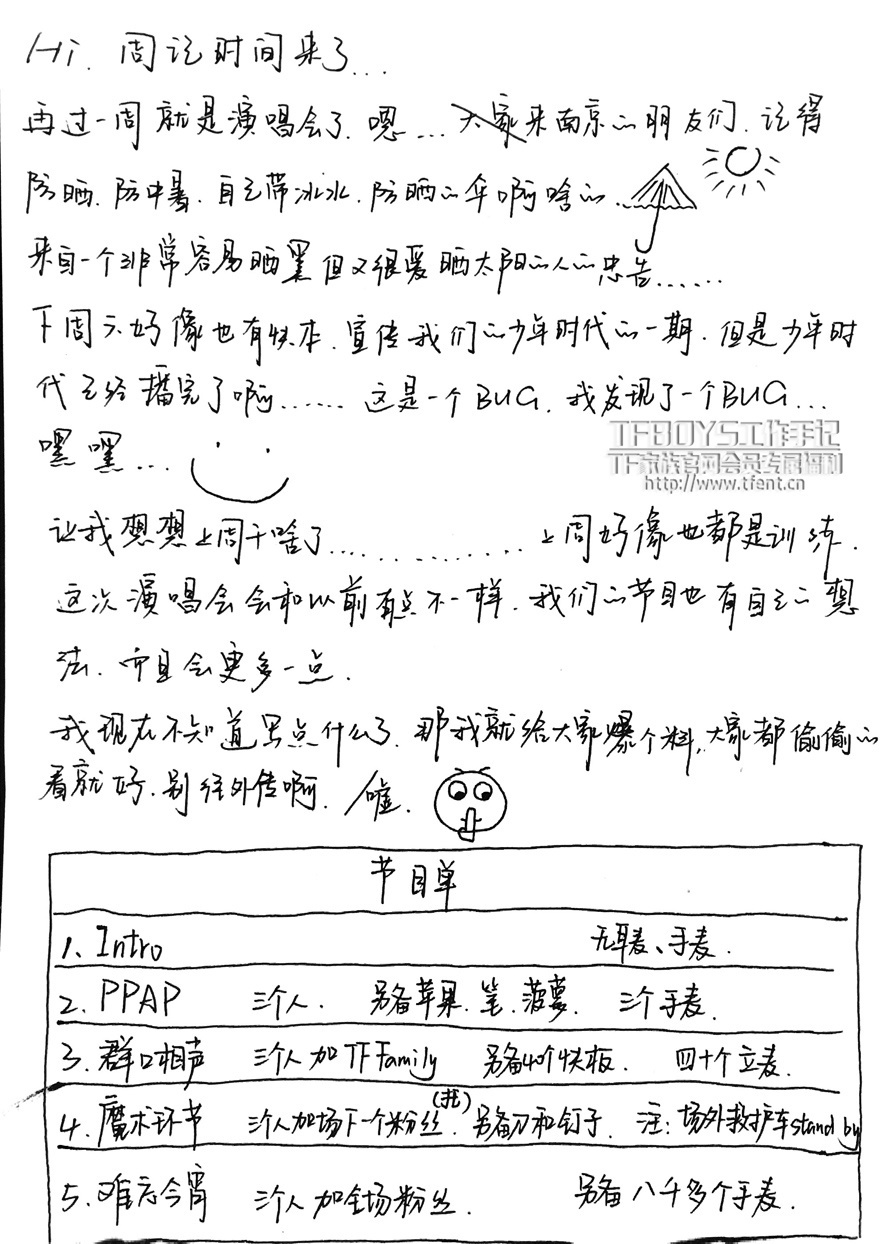 Hi. 周记时间来了...
再过一周就是演唱会了.嗯....大家来南京的朋友们.记得
防晒.防中暑.自己带冰水.防晒的伞啊啥的.
来自一个非常容易晒黑但又很爱晒太阳的人的忠告......
下周六好像也有快本.宣传我们的少年时代的一期.但是少年时
代已经播完了啊...... 这是一个BUG.我发现了一个BUG...
嘿嘿...
TFBOYS工作手记
TF家族官网会员专属福利
http://www.tfent.cn
让我想想上周干啥了.............. 上周好像也都是训练.
这次演唱会会和以前有点不一样.我们的节目也有自己的想
法.而且会更多一点.
我现在不知道写点什么了.那我就给大家爆个料,大家都偷偷的
看就好.别往外传啊. 嘘.
节目单
1. Intro 无耳麦、手麦.
2. PPAP 三个人. 另备苹果.笔.菠萝. 三个手麦.
3. 群口相声 三个人加TF Family 另备40个快板. 四十个立麦.
4. 魔术环节 三个人加场下一个粉丝(托).另备刀和钉子. 注:场外救护车stand by
5. 难忘今宵 三个人加全场粉丝. 另备八千多个手麦.